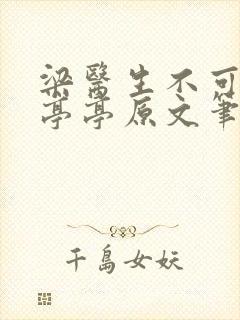 梁醫生不可
亭亭原文筆
千島女妖